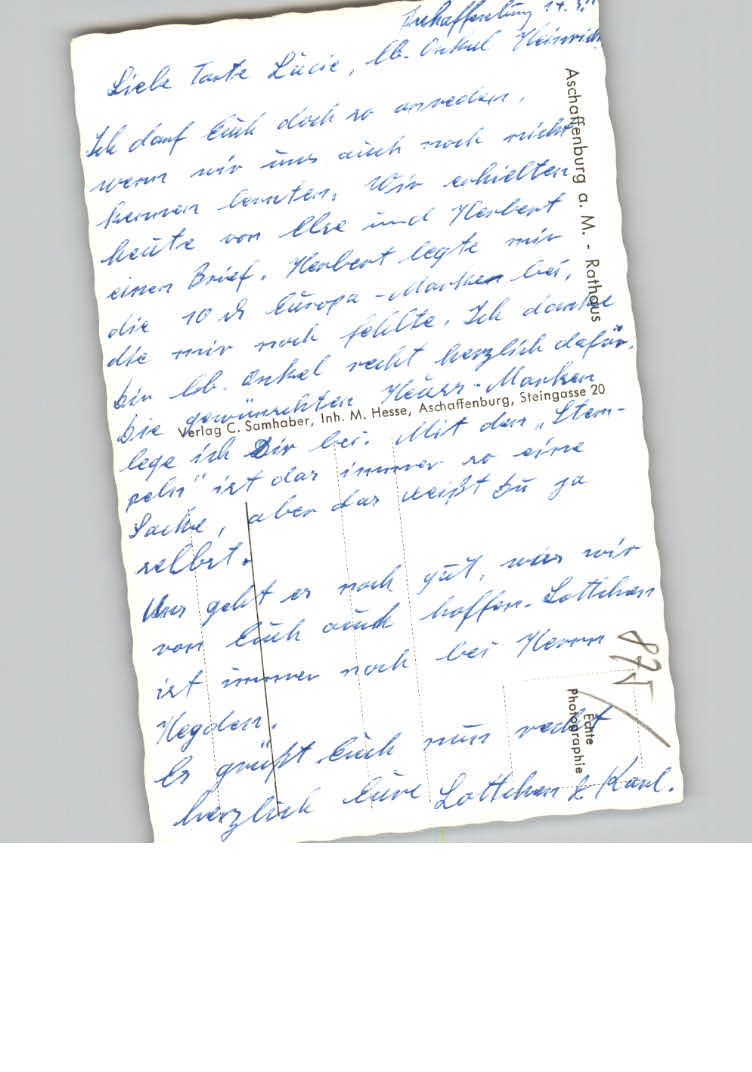 Aschaffenburg 14.3.
Liebe Tante Lücie, lb. Onkel Heinrich
Ich darf Euch doch so anreden,
wenn wir uns auch noch nicht
kennen lernten. Wir erhielten
heute von Else und Herbert
einen Brief. Herbert legte mir
die 10 Europa-Marken bei,
die mir noch fehlte. Ich danke
Dir lb. Onkel recht herzlich dafür.
Die gewünschten Heuss-Marken
lege ich Dir bei. Mit den „Stem-
peln" ist das immer so eine
Sache, aber das weißt Du ja
selbst.
Uns geht es noch gut, was wir
von Euch auch hoffen. Lottchen
ist immer noch bei Herrn
Es grüßt Euch nun recht
herzlich Eure Lottchen & Karl.
Aschaffenburg a. M. - Rathaus
Verlag C. Samhaber, Inh. M. Hesse, Aschaffenburg, Steingasse 20
Echte
Photographie
875